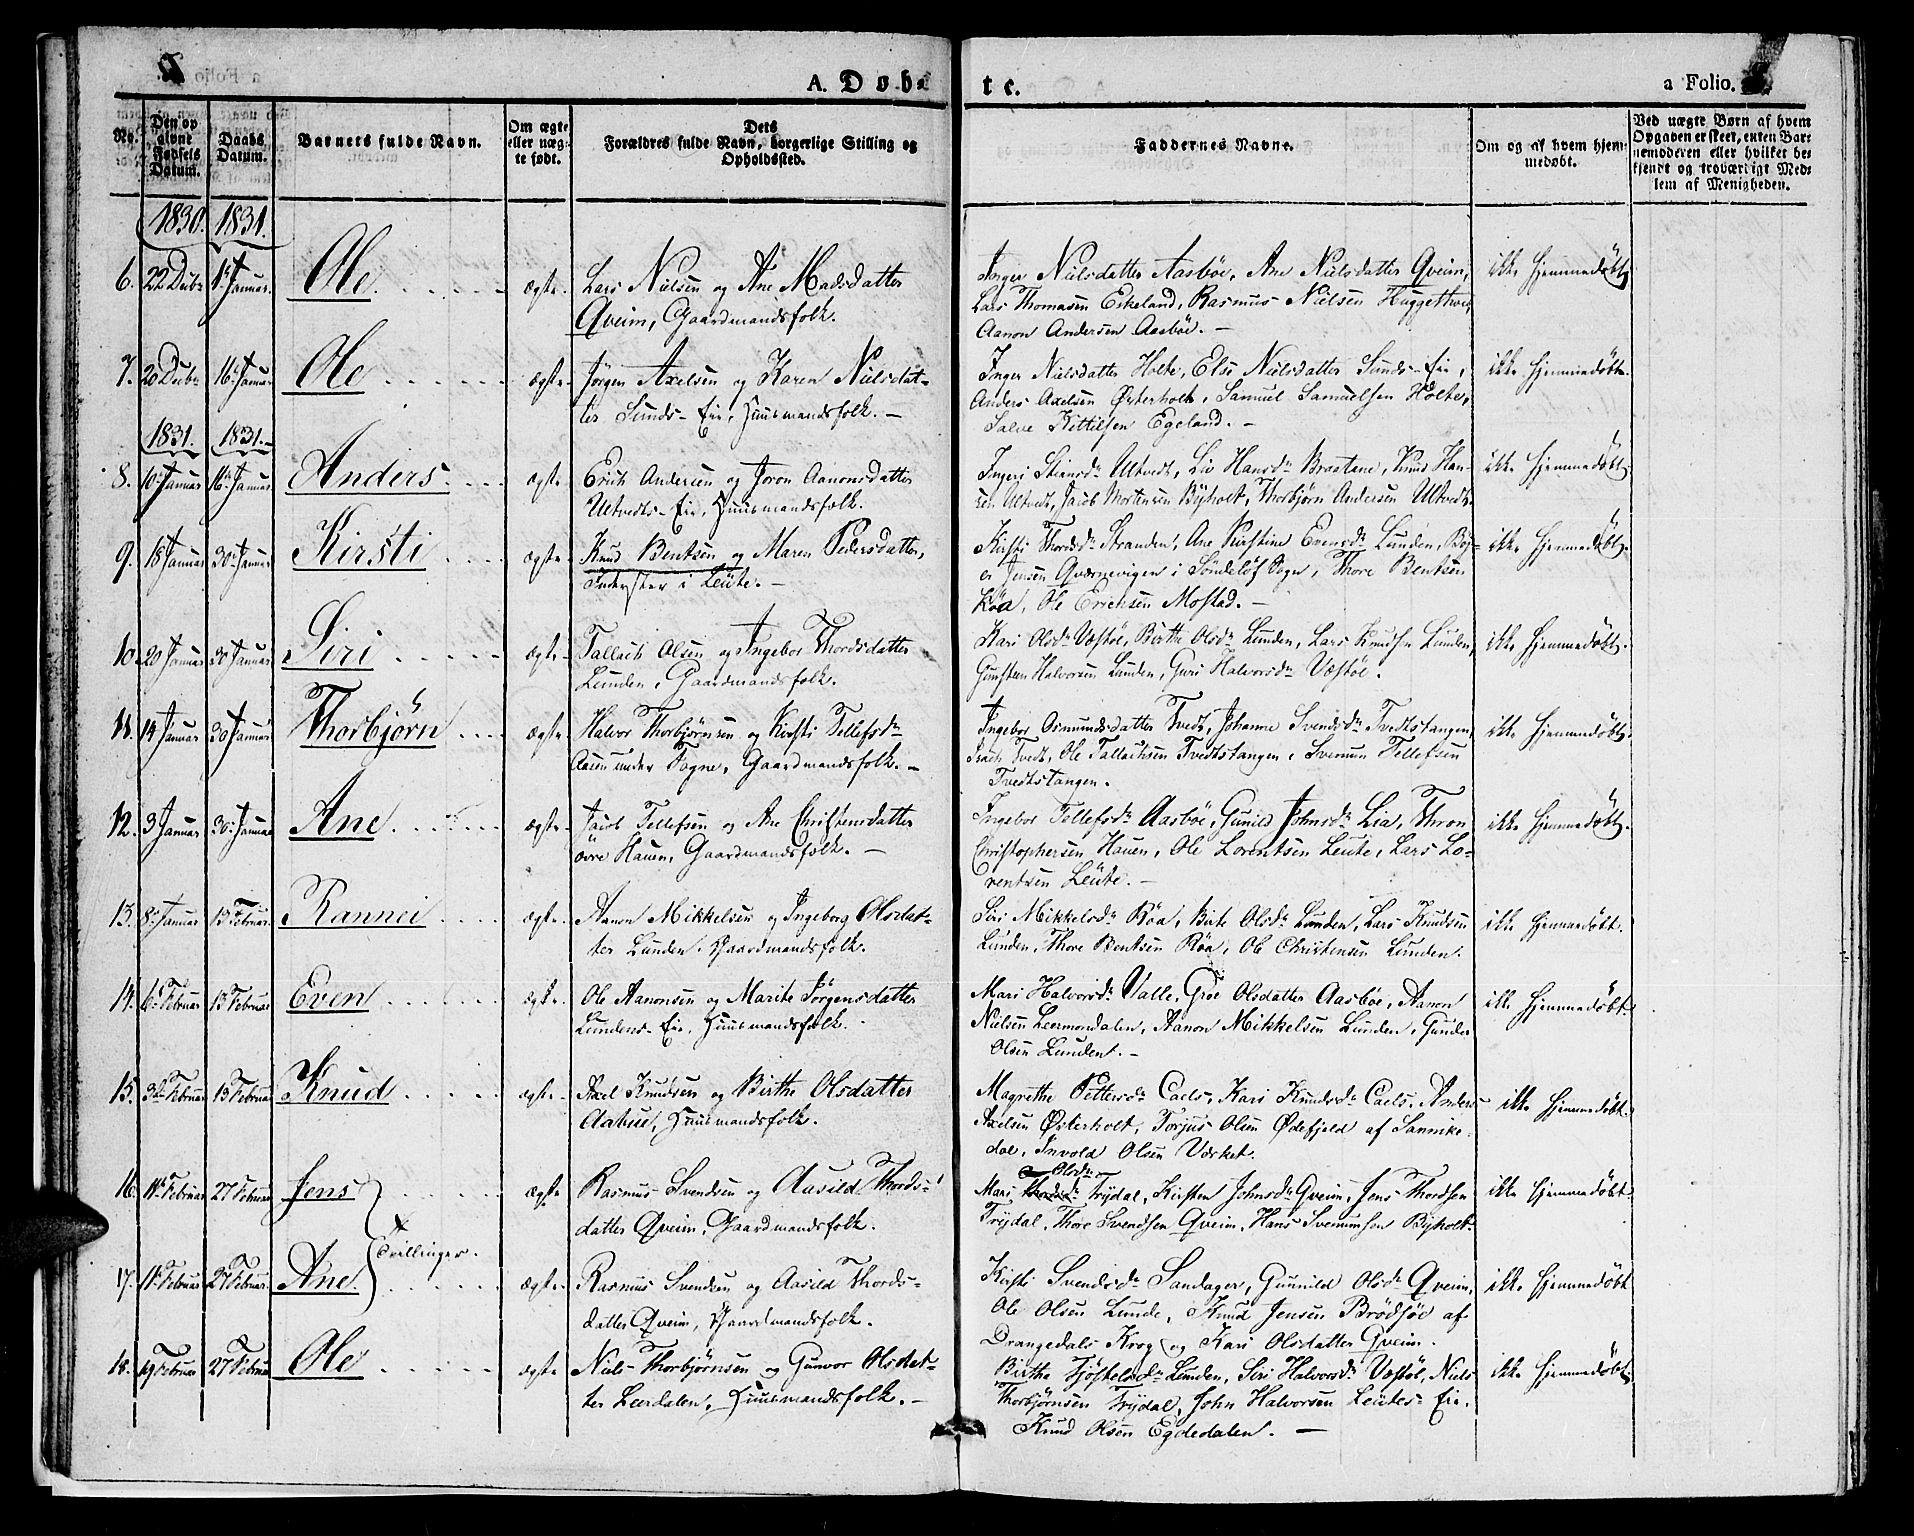 A. Døbte.
a Folio.
No.
Den opgivne Fødsels Datum.
Daabs Datum.
Barnets fulde Navn.
Om ægte eller uægte født.
Dets Forældres fulde Navn, borgerlige Stilling og Opholdssted.
Faddernes Navne.
Om og af hvem hjemmedøbt.
Ved uægte Børn af hvem Opgaven er skeet, enten Barnemoderen eller hvilket bekjendt og troværdigt Medlem af Menigheden.
1830. 1831.
6. 22 Debr 1 Januar. Ole. ægte Lars Nielsen og Ane Madsdatter
Qveim, Gaardmandsfolk.
Inger Nielsdatter Aasbøe, Ane Nielsdatter Qveim, ikke hjemmedøbt
Lars Thomasen Eskeland, Rasmus Nielsen
Aanon Andersen Aasbøe. —
7. 20 Debr 16 Januar Ole ægte Jørgen Axelsen og Karen Nielsdat-
ter Sunds-Eie, Huusmandsfolk. —
Inger Nielsdatter Holte, Else Nielsdatter Sunds-Eie, ikke hjemmedøbt.
Anders Axelsen Østerholt, Samuel Samuelsen Holte,
Salve Kittilsen Egeland. —
1831. 1831.
8. 10 Januar 16 Januar Anders ægte Erich Andersen og Joron Aanonsdatter
Ultvedts-Eie, Huusmandsfolk.
Ingeri Ultvedt, Liv Hansdr Braatane, Knud Han- ikke hjemmedøbt
sen Ultvedt, Jacob Mortensen Byholt, Thorbjørn Andersen Ultvedt
9. 18 Januar 30 Januar Kirsti ægte Knud Bentsen og Maren Pedersdatter,
Inderster i Leüte. —
Kirsti Thordsdr Stranden, Ane Kirstine Evensdr Lunden, Boy- ikke hjemmedøbt.
er Jensen Qvernevigen i Søndeløf Sogn, Thore Bentsen
Röa, Ole Erichsen Mostad. —
10. 20 Januar 30 Januar Siri ægte Tallach Olsen og Ingebor Thordsdatter
Lunden, Gaardmandsfolk.
Kari Olsdr Vestöe, Birthe Olsdr Lunden, Lars Knudsen Lunden, ikke hjemmedøbt.
Gunsteen Halvorsen Lunden, Guri Halvorsdr Vestöe.
11. 14 Januar 30 Januar Thorbjørn ægte Halvor Thorbjørnsen og Kirsti Tellefsdr
Aasen under Songne, Gaardmandsfolk. —
Ingebor Osmundsdatter Tvedt, Johanne Svendsdr Tvedtstangen, ikke hjemmedøbt.
Isach Tvedt, Ole Tallachsen Tvedtstangen, Svenum Tellefsen
Tvedtstangen.
12. 3 Januar 30 Januar Ane ægte Jacob Tellefsen og Ane Christensdatter
övre Hauen, Gaardmandsfolk. —
Ingebor Tellefsdr Aasbøe, Gunild Johnsdr Lia, Thron ikke hjemmedøbt.
Christophersen Hauen, Ole Lorentsen Leute, Lars Lo-
rentsen Leüte. —
13. 8 Januar 13 Februar Rannei ægte Aanon Mikkelsen og Ingeborg Olsdat-
ter Lunden, Gaardmandsfolk.
Siri Mikkelsdr Röa, Birte Olsdr Lunden, Lars Knudsen ikke hjemmedøbt.
Lunden, Thore Bentsen Röa, Ole Christensen Lunden.
14. 6 Februar 13 Februar Even ægte Ole Aanonsen og Marite Jørgensdatter
Lundens-Eie, Huusmandsfolk.
Mari Halvorsdr Valle, Groe Olsdatter Aasbøe, Aanon ikke hjemmedøbt.
Nielsen Leermondalen, Aanon Mikkelsen Lunden, Gunder
Olsen Lunden. —
15. 3 Februar 13 Februar Knud ægte Axel Knudsen og Birthe Olsdatter
Aabue, Huusmandsfolk.
Magrethe Pettersdr Caels, Kari Knudsdr Caels, Anders ikke hjemmedøbt.
Axelsen Østerholt, Torjus Olsen Ødefjeld af Sannike-
dal, Invold Olsen Værket.
16. 11 Februar 27 Februar Jens ægte Rasmus Svendsen og Aasild Thords-
datter Qveim, Gaardmandsfolk.
Olsdr
Mari Trydal, Kirsten Johnsdr Qveim, Jens Thordsen ikke hjemmedøbt.
Trydal, Thore Svendsen Qveim, Hans Svenumsen Byholt.
Tvillinger.
17. 11 Februar 27 Februar Ane ægte Rasmus Svendsen og Aasild Thords-
datter Qveim, Gaardmandsfolk.
Kirsti Svendsdr Sandager, Gunnild Olsdr Qveim, ikke hjemmedøbt
Ole Olsen Lunde, Knud Jensen Brödsöe af
Drangedals Krog og Kari Olsdatter Qveim.
18. 19 Februar 27 Februar Ole ægte Niels Thorbjørnsen og Gunvor Olsdat-
ter Leerdalen, Huusmandsfolk. —
Birthe Lunden, Siri Halvorsdr Vestöl, Niels ikke hjemmedøbt
Thorbjørnsen Trydal, John Halvorsen Leütes-Eie,
Knud Olsen Egdedalen. —